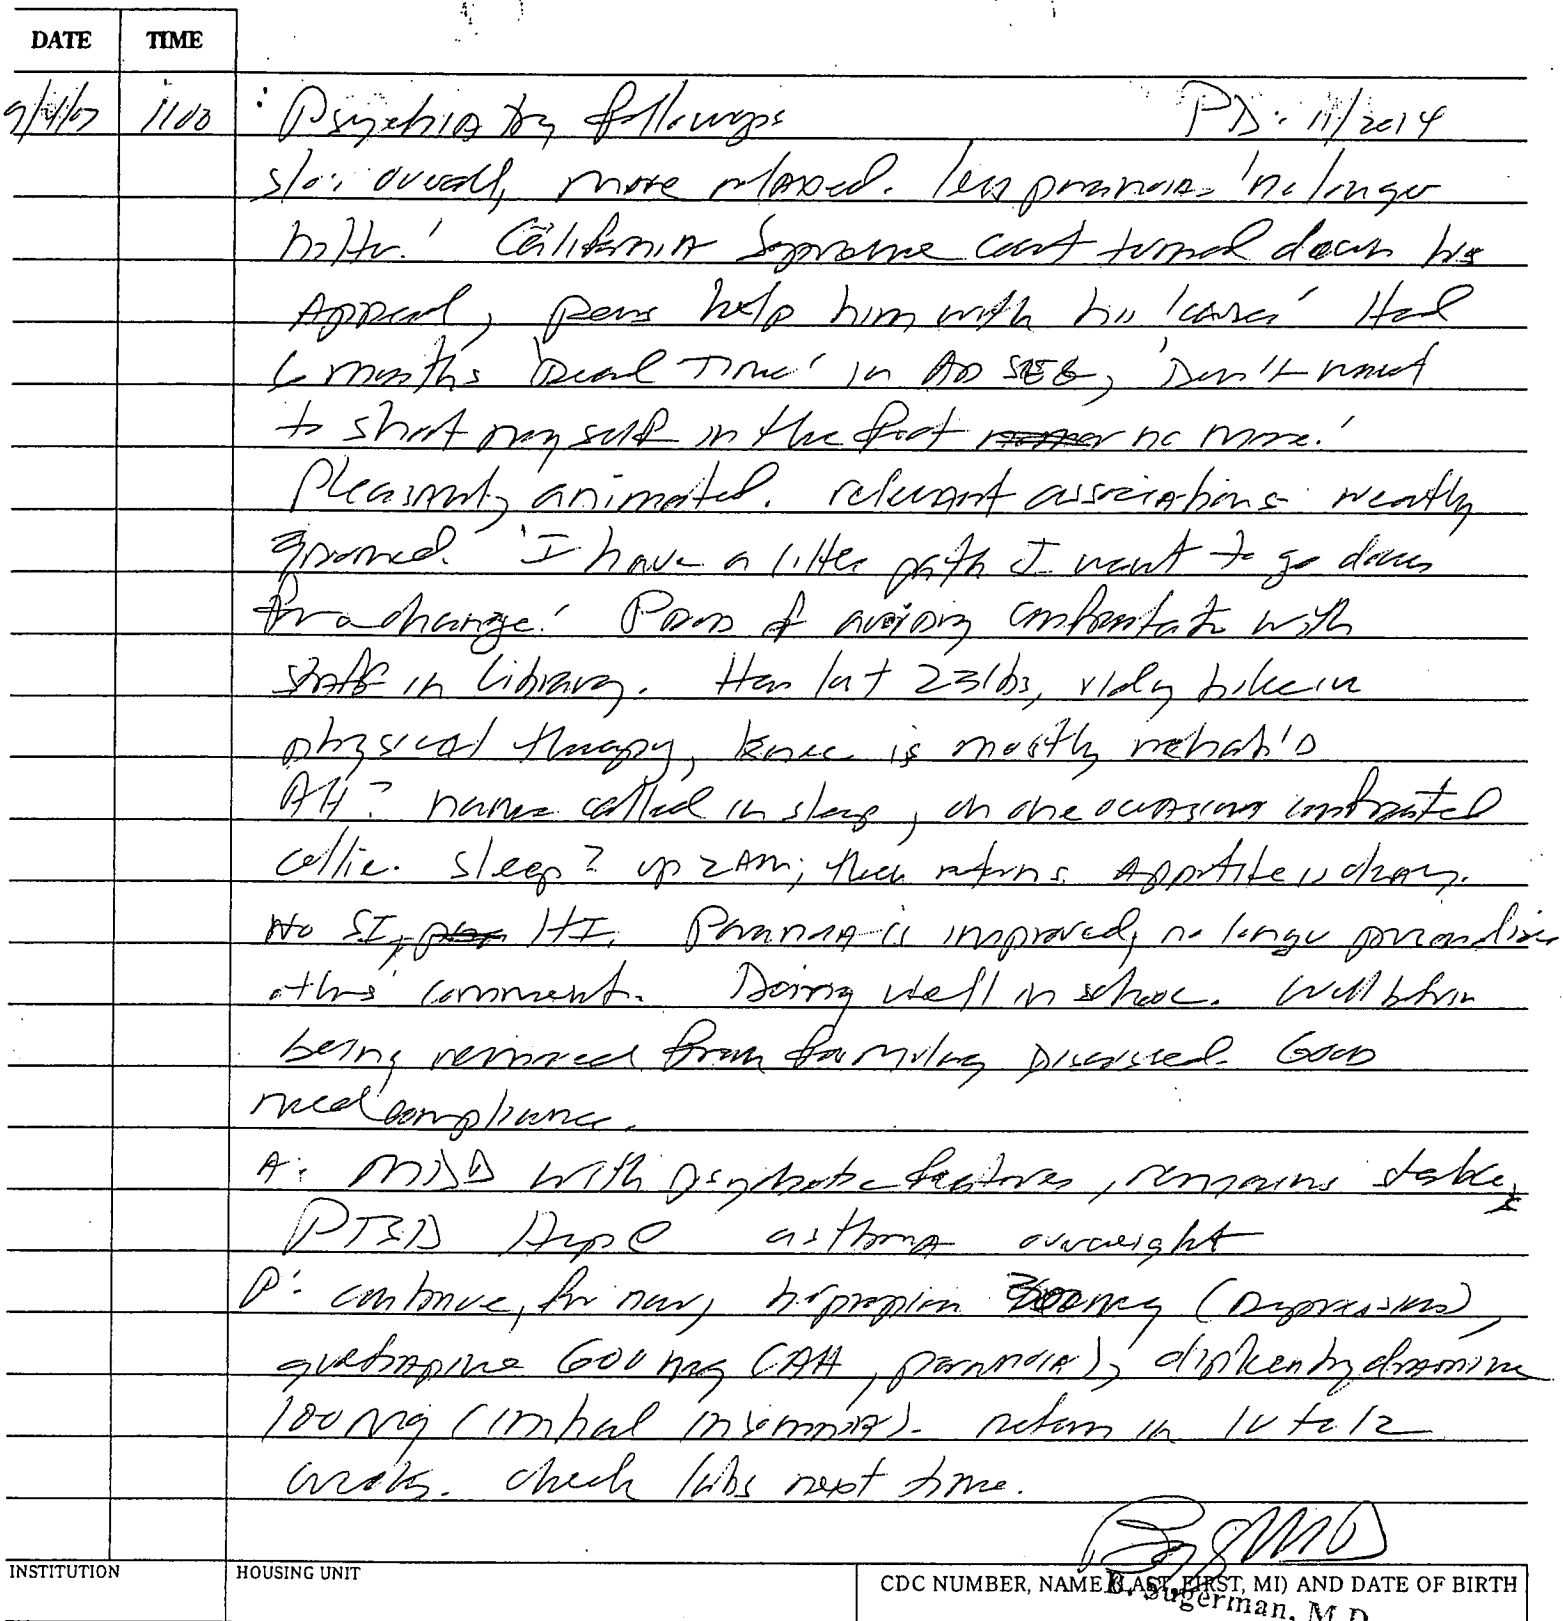 DATE TIME
1100 : Psychiatry followup PD: 11/2014
S/O: overall, more relaxed. less paranoia. 'no longer
bitter.' California Supreme court turned down his
Appeal, peers help him with his 'cases' Had
6 months 'Dead Time' in AD SEG, 'Don't want
to shoot myself in the foot no more.'
Pleasantly animated. relevant associations neatly
groomed. 'I have a little path I want to go down
for a change.' Proud of avoiding confrontatn with
staff in library. Has lost 23 lbs, riding bike in
physical therapy, knee is mostly rehab'D
AH? name called in sleep, on one occasion confronted
cellie. Sleep? up 2AM; then returns. Appetite is okay.
No SI, HI. Paranoia is improved, no longer personalizes
others' comments. Doing well in school. Wellbutrin
being removed from formulary Discussed. Good
med compliance.
A: MDD with psychotic features, remains stable,
PTSD Hep C asthma overweight
P: continue, for now, bupropion 300mg (Depression),
quetiapine 600 mg (AH, paranoia), diphenhydramine
100 mg (initial insomnia). return in 10 to 12
weeks. check labs next time.
INSTITUTION HOUSING UNIT CDC NUMBER, NAME (LAST, FIRST, MI) AND DATE OF BIRTH
B. Sugerman, M.D.